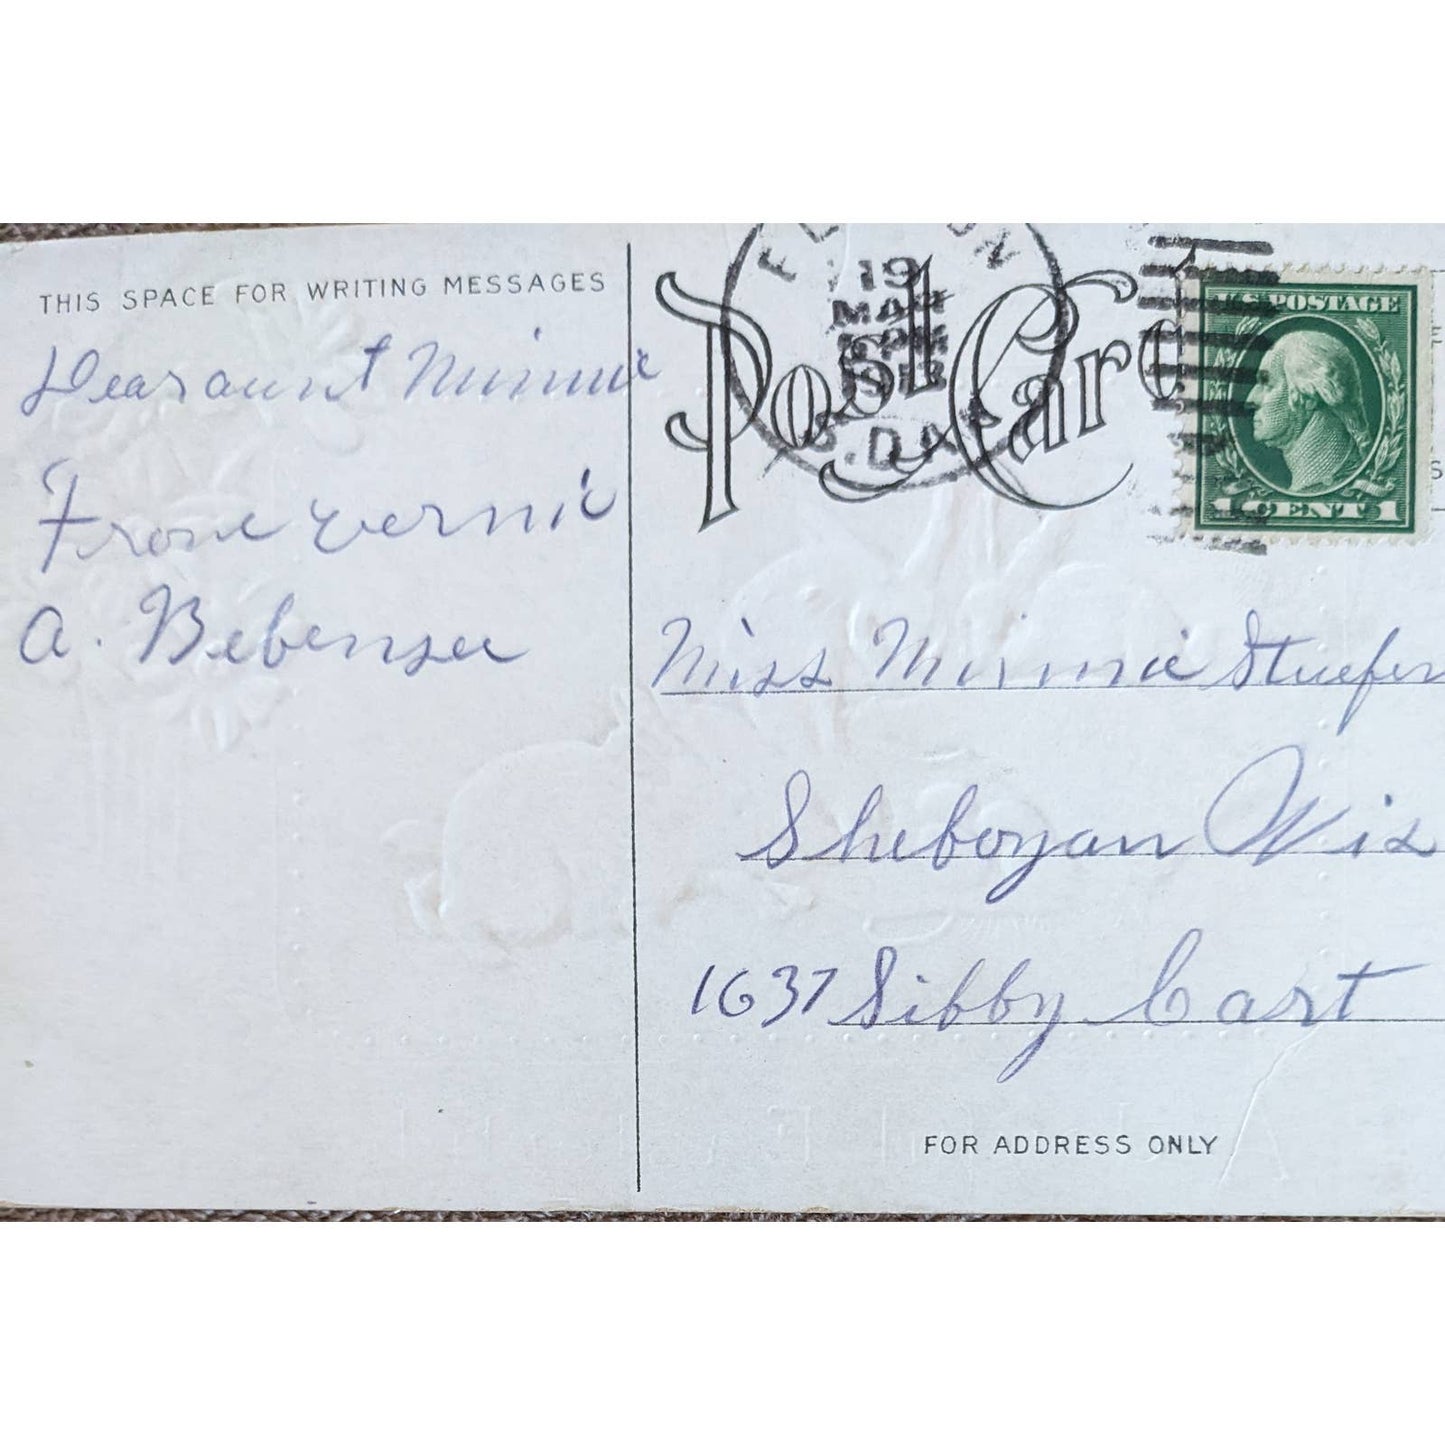 THIS SPACE FOR WRITING MESSAGES
Dear aunt Minnie
From vernie
A. Bebensee
Post Card
19
MAR
S. DAK
U.S. POSTAGE
1 CENT 1
Miss Minnie Stuefen
Sheboyan Wis
1637 Sibby Cart
FOR ADDRESS ONLY